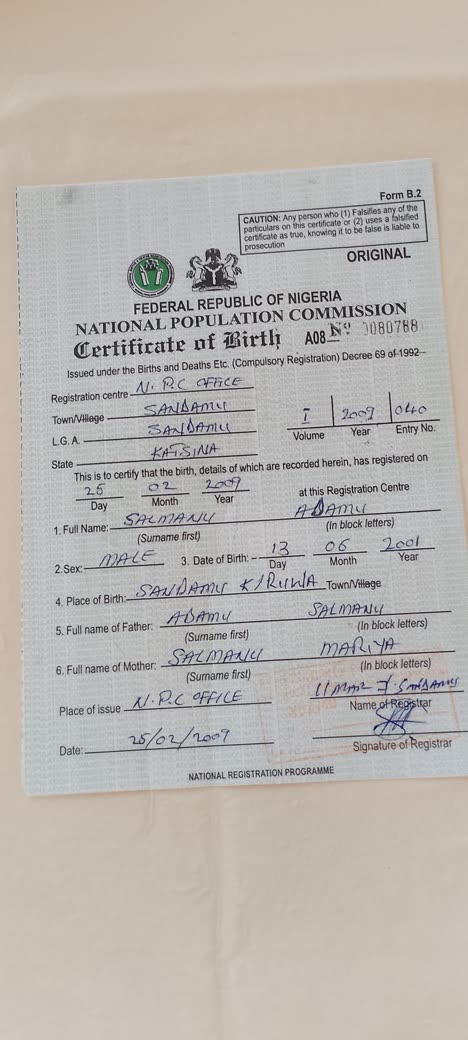 Form B.2
CAUTION: Any person who (1) Falsifies any of the
particulars on this certificate or (2) uses a falsified
certificate as true, knowing it to be false is liable to
prosecution
ORIGINAL
FEDERAL REPUBLIC OF NIGERIA
NATIONAL POPULATION COMMISSION
Certificate of Birth A08 Nº 0080788
Issued under the Births and Deaths Etc. (Compulsory Registration) Decree 69 of 1992
Registration centre N.P.C OFFICE
Town/Village SANDAMU
L.G.A. SANDAMU
I 2009 040
Volume Year Entry No.
State KATSINA
This is to certify that the birth, details of which are recorded herein, has registered on
25 02 2009 at this Registration Centre
Day Month Year
1. Full Name: SALMANU ADAMU
(Surname first) (In block letters)
2.Sex: MALE 3. Date of Birth: 13 06 2001
Day Month Year
4. Place of Birth: SANDAMU K/RUWA Town/Village
5. Full name of Father: ADAMU SALMANU
(Surname first) (In block letters)
6. Full name of Mother: SALMANU MARIYA
(Surname first) (In block letters)
Place of issue N.P.C OFFICE UMAR SANDAMU
Name of Registrar
Date: 25/02/2009
Signature of Registrar
NATIONAL REGISTRATION PROGRAMME